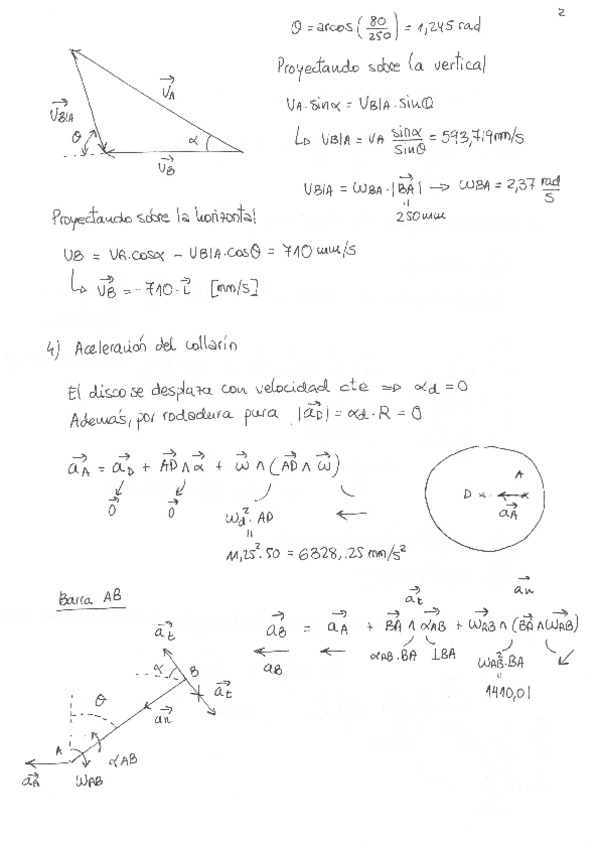 2
θ = arcos (80/250) = 1,245 rad
Proyectando sobre la vertical
VA·sinα = VB/A·sinθ
↳ VB/A = VA sinα/sinθ = 593,719 mm/s
VB/A = ωBA·|BA| → ωBA = 2,37 rad/s
250 mm
VB/A
VA
θ
α
VB
Proyectando sobre la horizontal
VB = VA·cosα - VB/A·cosθ = 710 mm/s
↳ VB = -710·i [mm/s]
4) Aceleración del collarín
El disco se desplaza con velocidad cte ⇒ αd = 0
Además, por rodadura pura |aD| = αd·R = 0
aA = aD + AD ∧ α + ω ∧ (AD ∧ ω)
0 0 ωd²·AD ←
11,25²·50 = 6328,125 mm/s²
A
D
aA
Barra AB
at an
aB = aA + BA ∧ αAB + ωAB ∧ (BA ∧ ωAB)
aB αAB·BA ⊥BA ωAB²·BA
1410,01
at
α
B
at
θ
an
A
αAB
aA ωAB